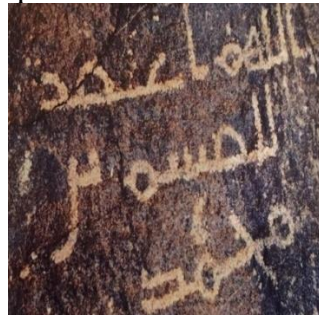 اللهم اغفر
للقسم بن
محمد